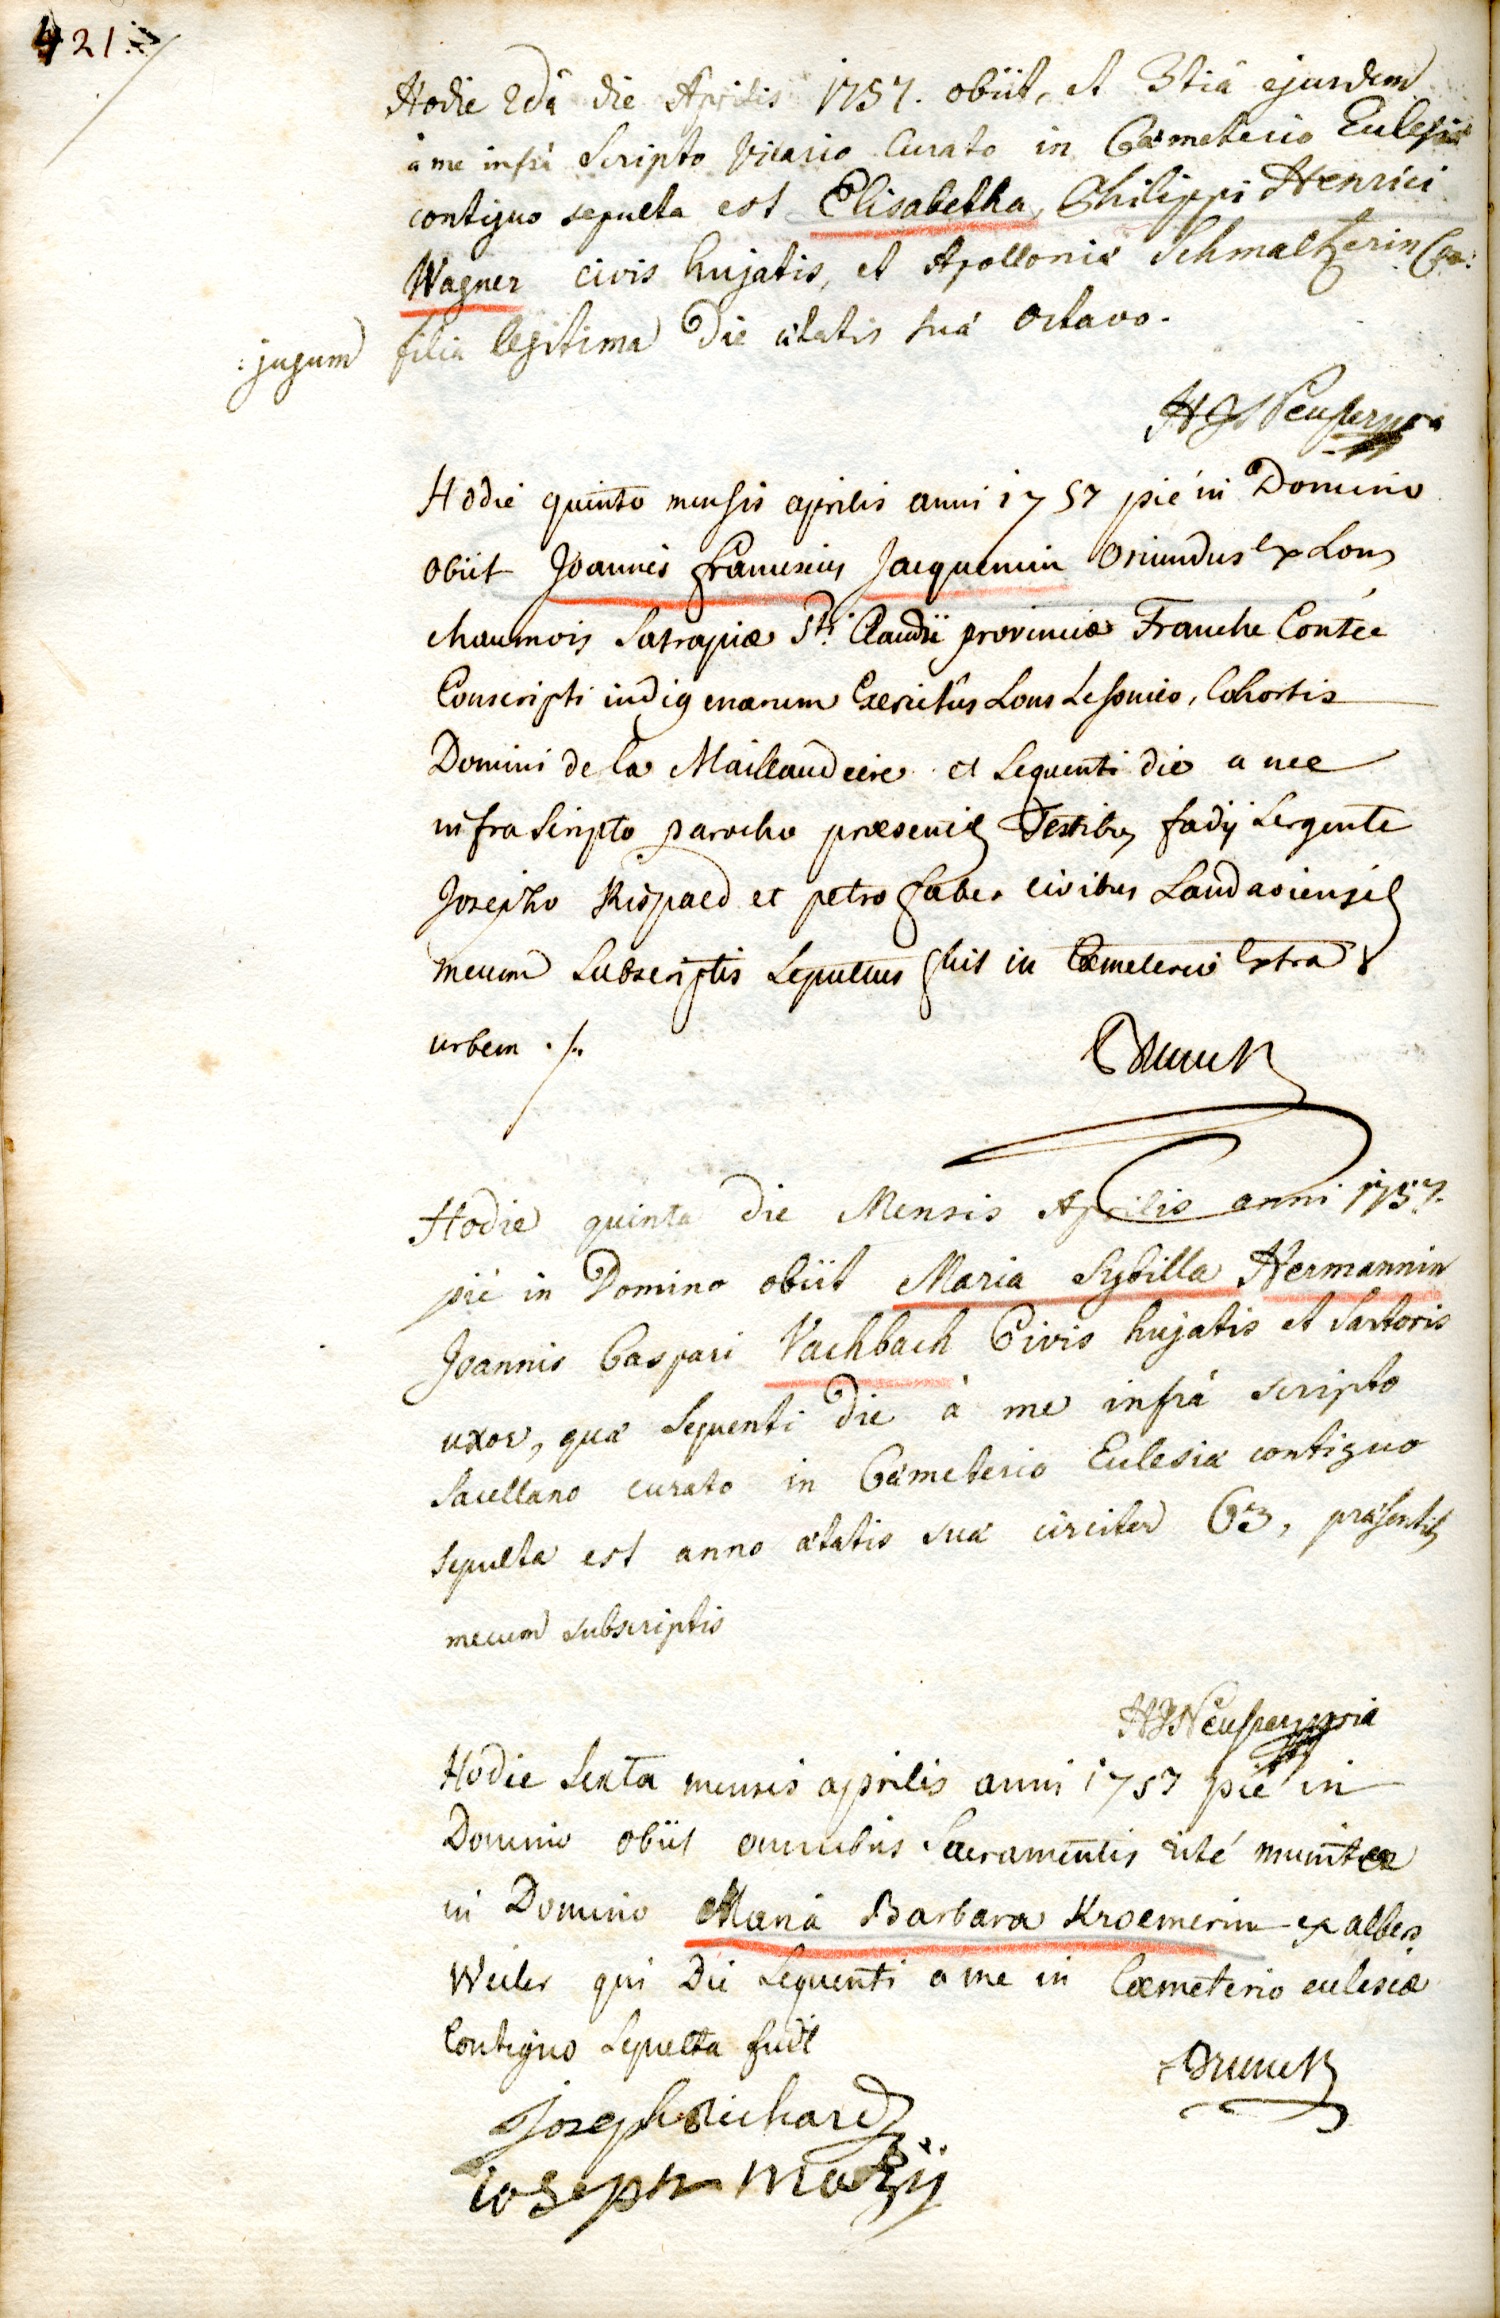 421
Hodie 2dâ die Aprilis 1757. obiit, et 3tiâ ejusdem
à me infrà scripto Vicario Curato in Cœmeterio Ecclesiæ
contiguo sepulta est Elisabetha, Philippi Henrici
Wagner civis hujatis, et Apolloniæ Schmaltzerin Con:
:jugum filia legitima Die ætatis suæ octavo.
Hodie quinto mensis aprilis anni 1757 pié in Domino
obiit Joannes franciscus Jacquemin oriundus ex Lon
chaumois Satrapiæ Sti Claudii provinciæ Franche Contée
Conscripti indigenarum Exercitûs Lons Lesonier, Cohortis
Domini de la Maillaudeire et sequenti die a me
infra scripto parocho præsentib testibus fadij sergente
Josepho Rispaed et petro faber civibus Landaviensib
mecum subscriptis sepultus fuit in Cœmeterio extra
urbem ./.
Hodie quinta die Mensis Aprilis anni 1757.
piè in Domino obiit Maria Sybilla Hermannin
Joannis Caspari Vachbach Civis hujatis et Sartoris
uxor, quæ sequenti die à me infrá scripto
Sacellano curato in Cœmeterio Ecclesiæ contiguo
sepulta est anno ætatis suæ circiter 63, præsentib
mecum subscriptis
Hodie sexta mensis aprilis anni 1757 pié in
Domino obiit omnibus Sacramentis rité munita
in Domino Maria Barbara Kroemerin ex albers
Weiler qui Die sequenti a me in Cœmeterio ecclesiæ
Contiguo sepulta fuit
Brunck
Joseph Richard
ioseph Mozÿ